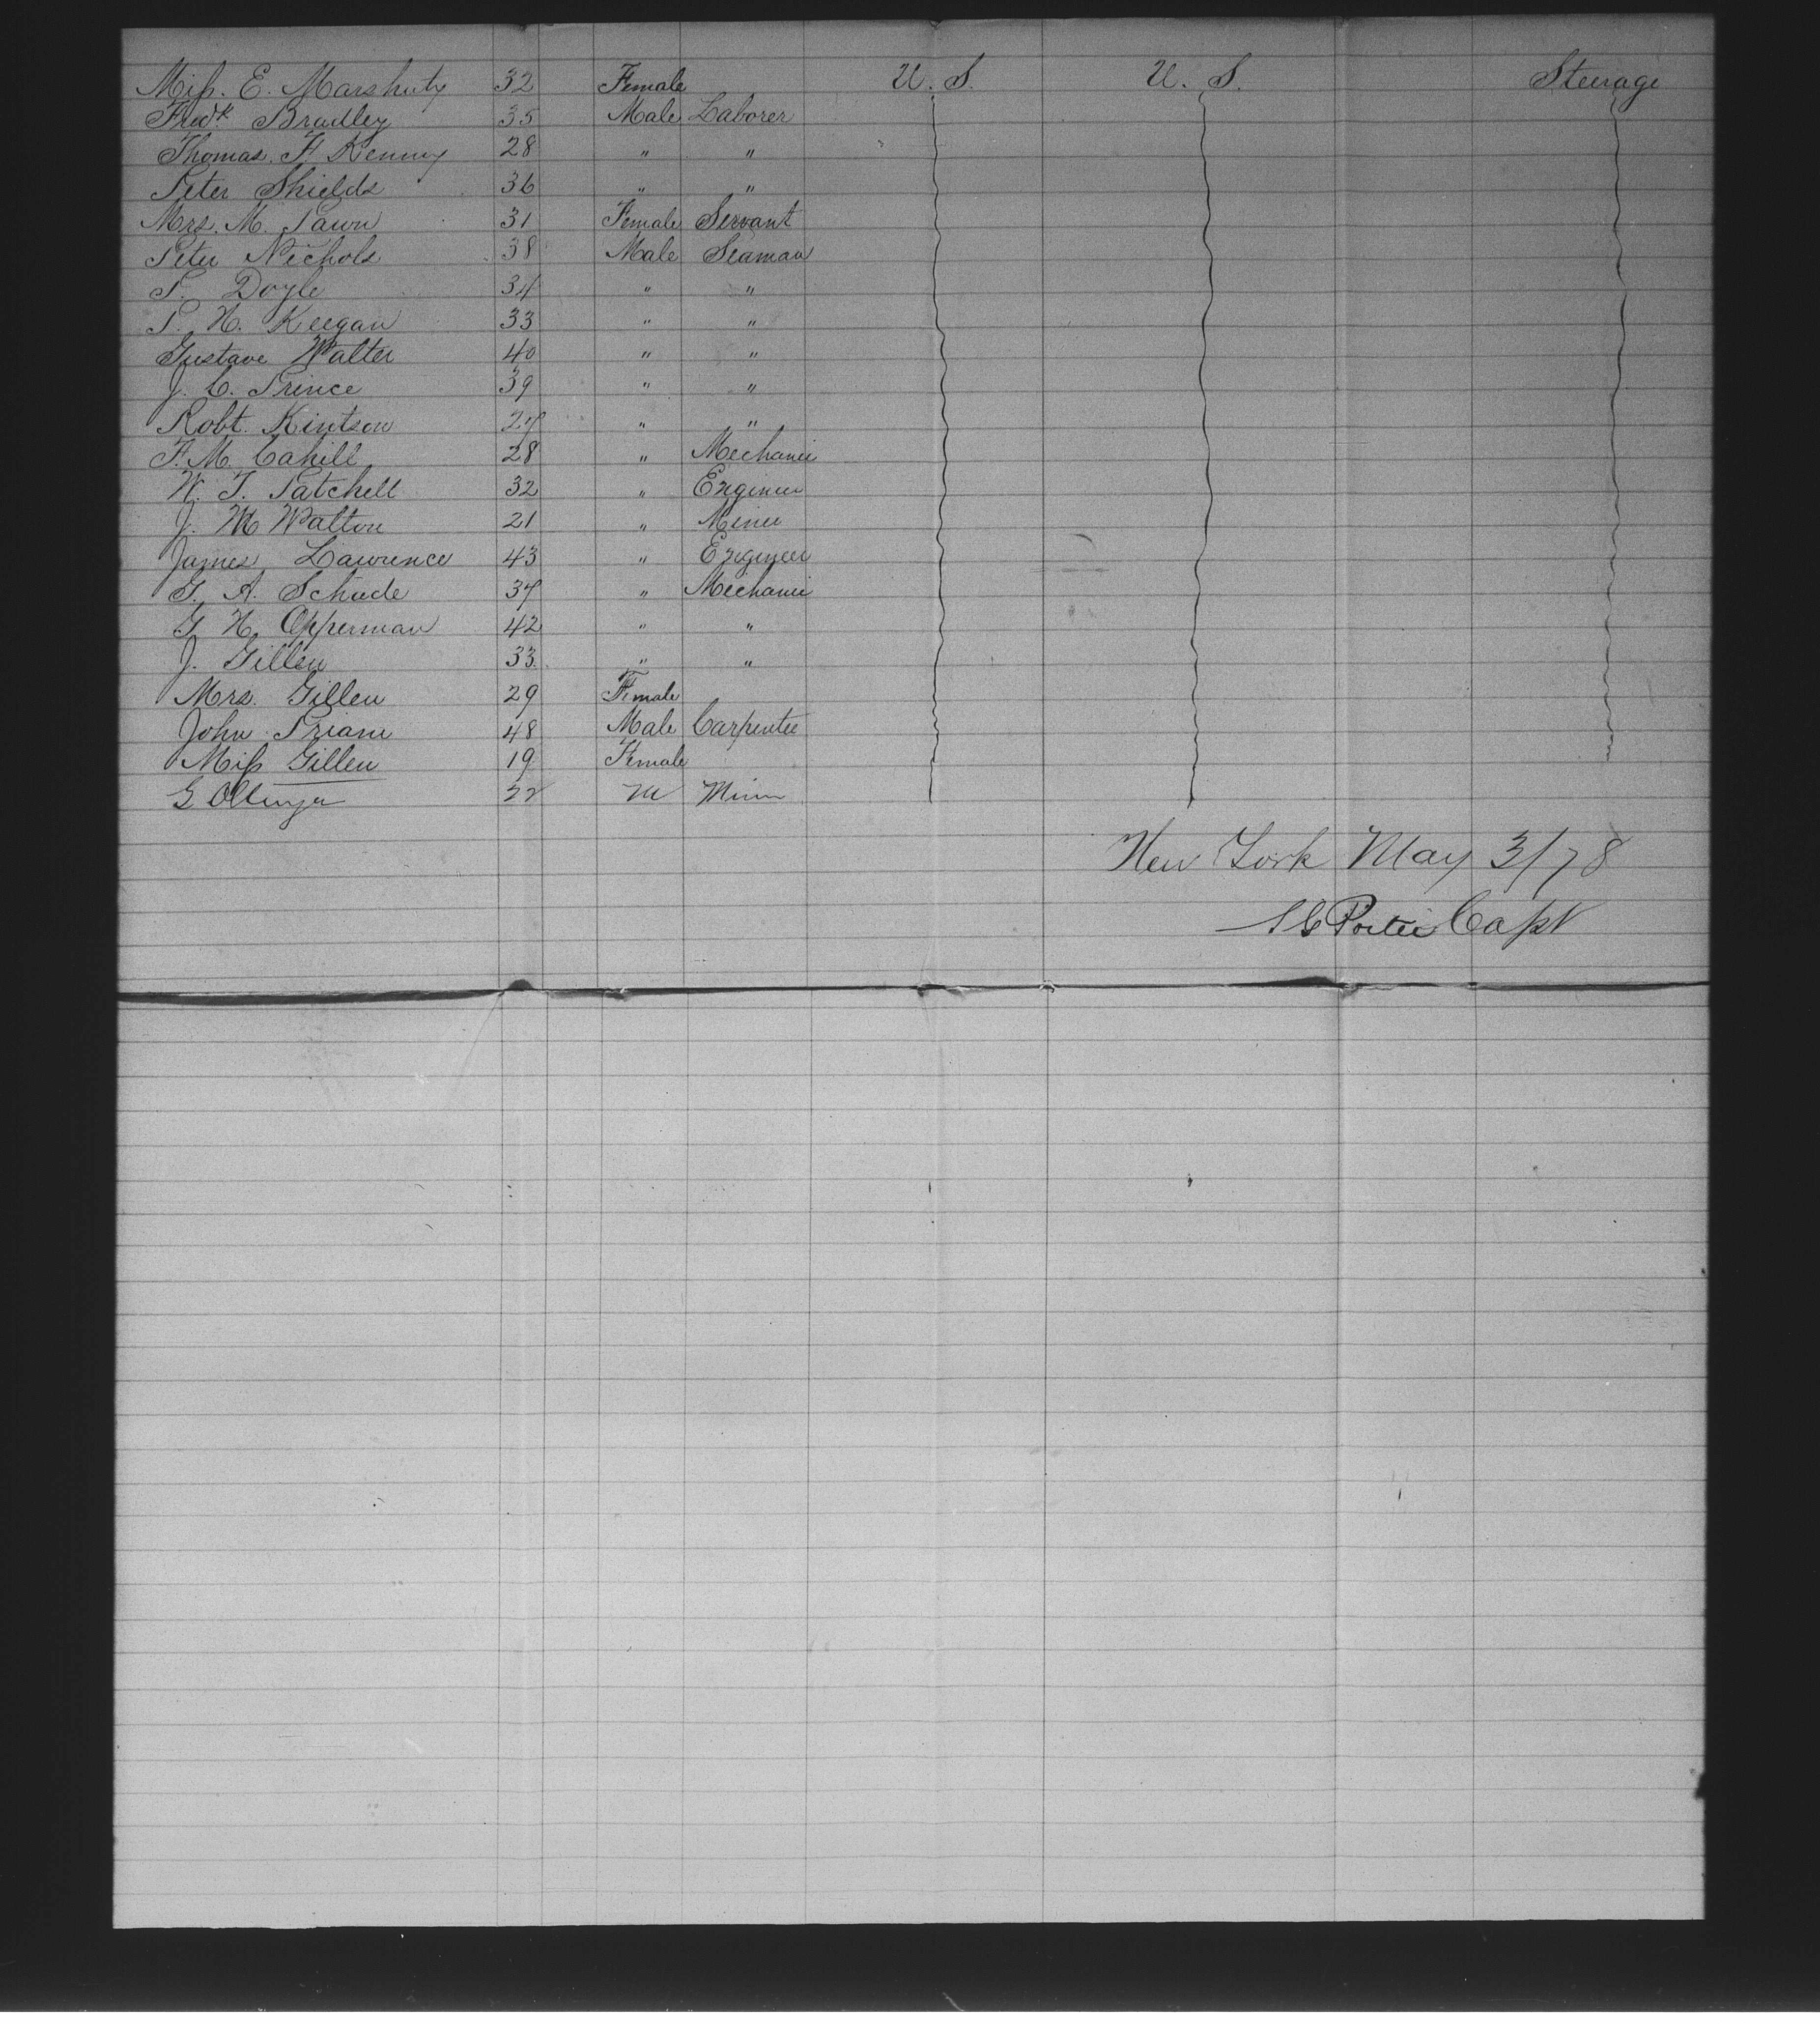 Miss. E. Marshuty 32 Female U. S. U. S. Steerage
Fredk. Bradley 35 Male Laborer
Thomas. F Kenny 28 " "
Peter Shields 36 " "
Mrs. M. Pawn 31 Female Servant
Peter Nichols 38 Male Seaman
P. Doyle 34 " "
P. H. Keegan 33 " "
Gustave Walter 40 " "
J. C. Prince 39 " "
Robt. Kintson 27 " "
F. M. Cahill 28 " Mechanic
W. T. Patchell 32 " Engineer
J. M Walton 21 " Miner
James Lawrence 43 " Engineer
G. A. Schude 37 " Mechanic
G H. Opperman 42 " "
J. Gillen 33 " "
Mrs. Gillen 29 Female
John Priam 48 Male Carpenter
Miss Gillen 19 Female
G 22 M Miner
New York May 3/78
Porter Capt